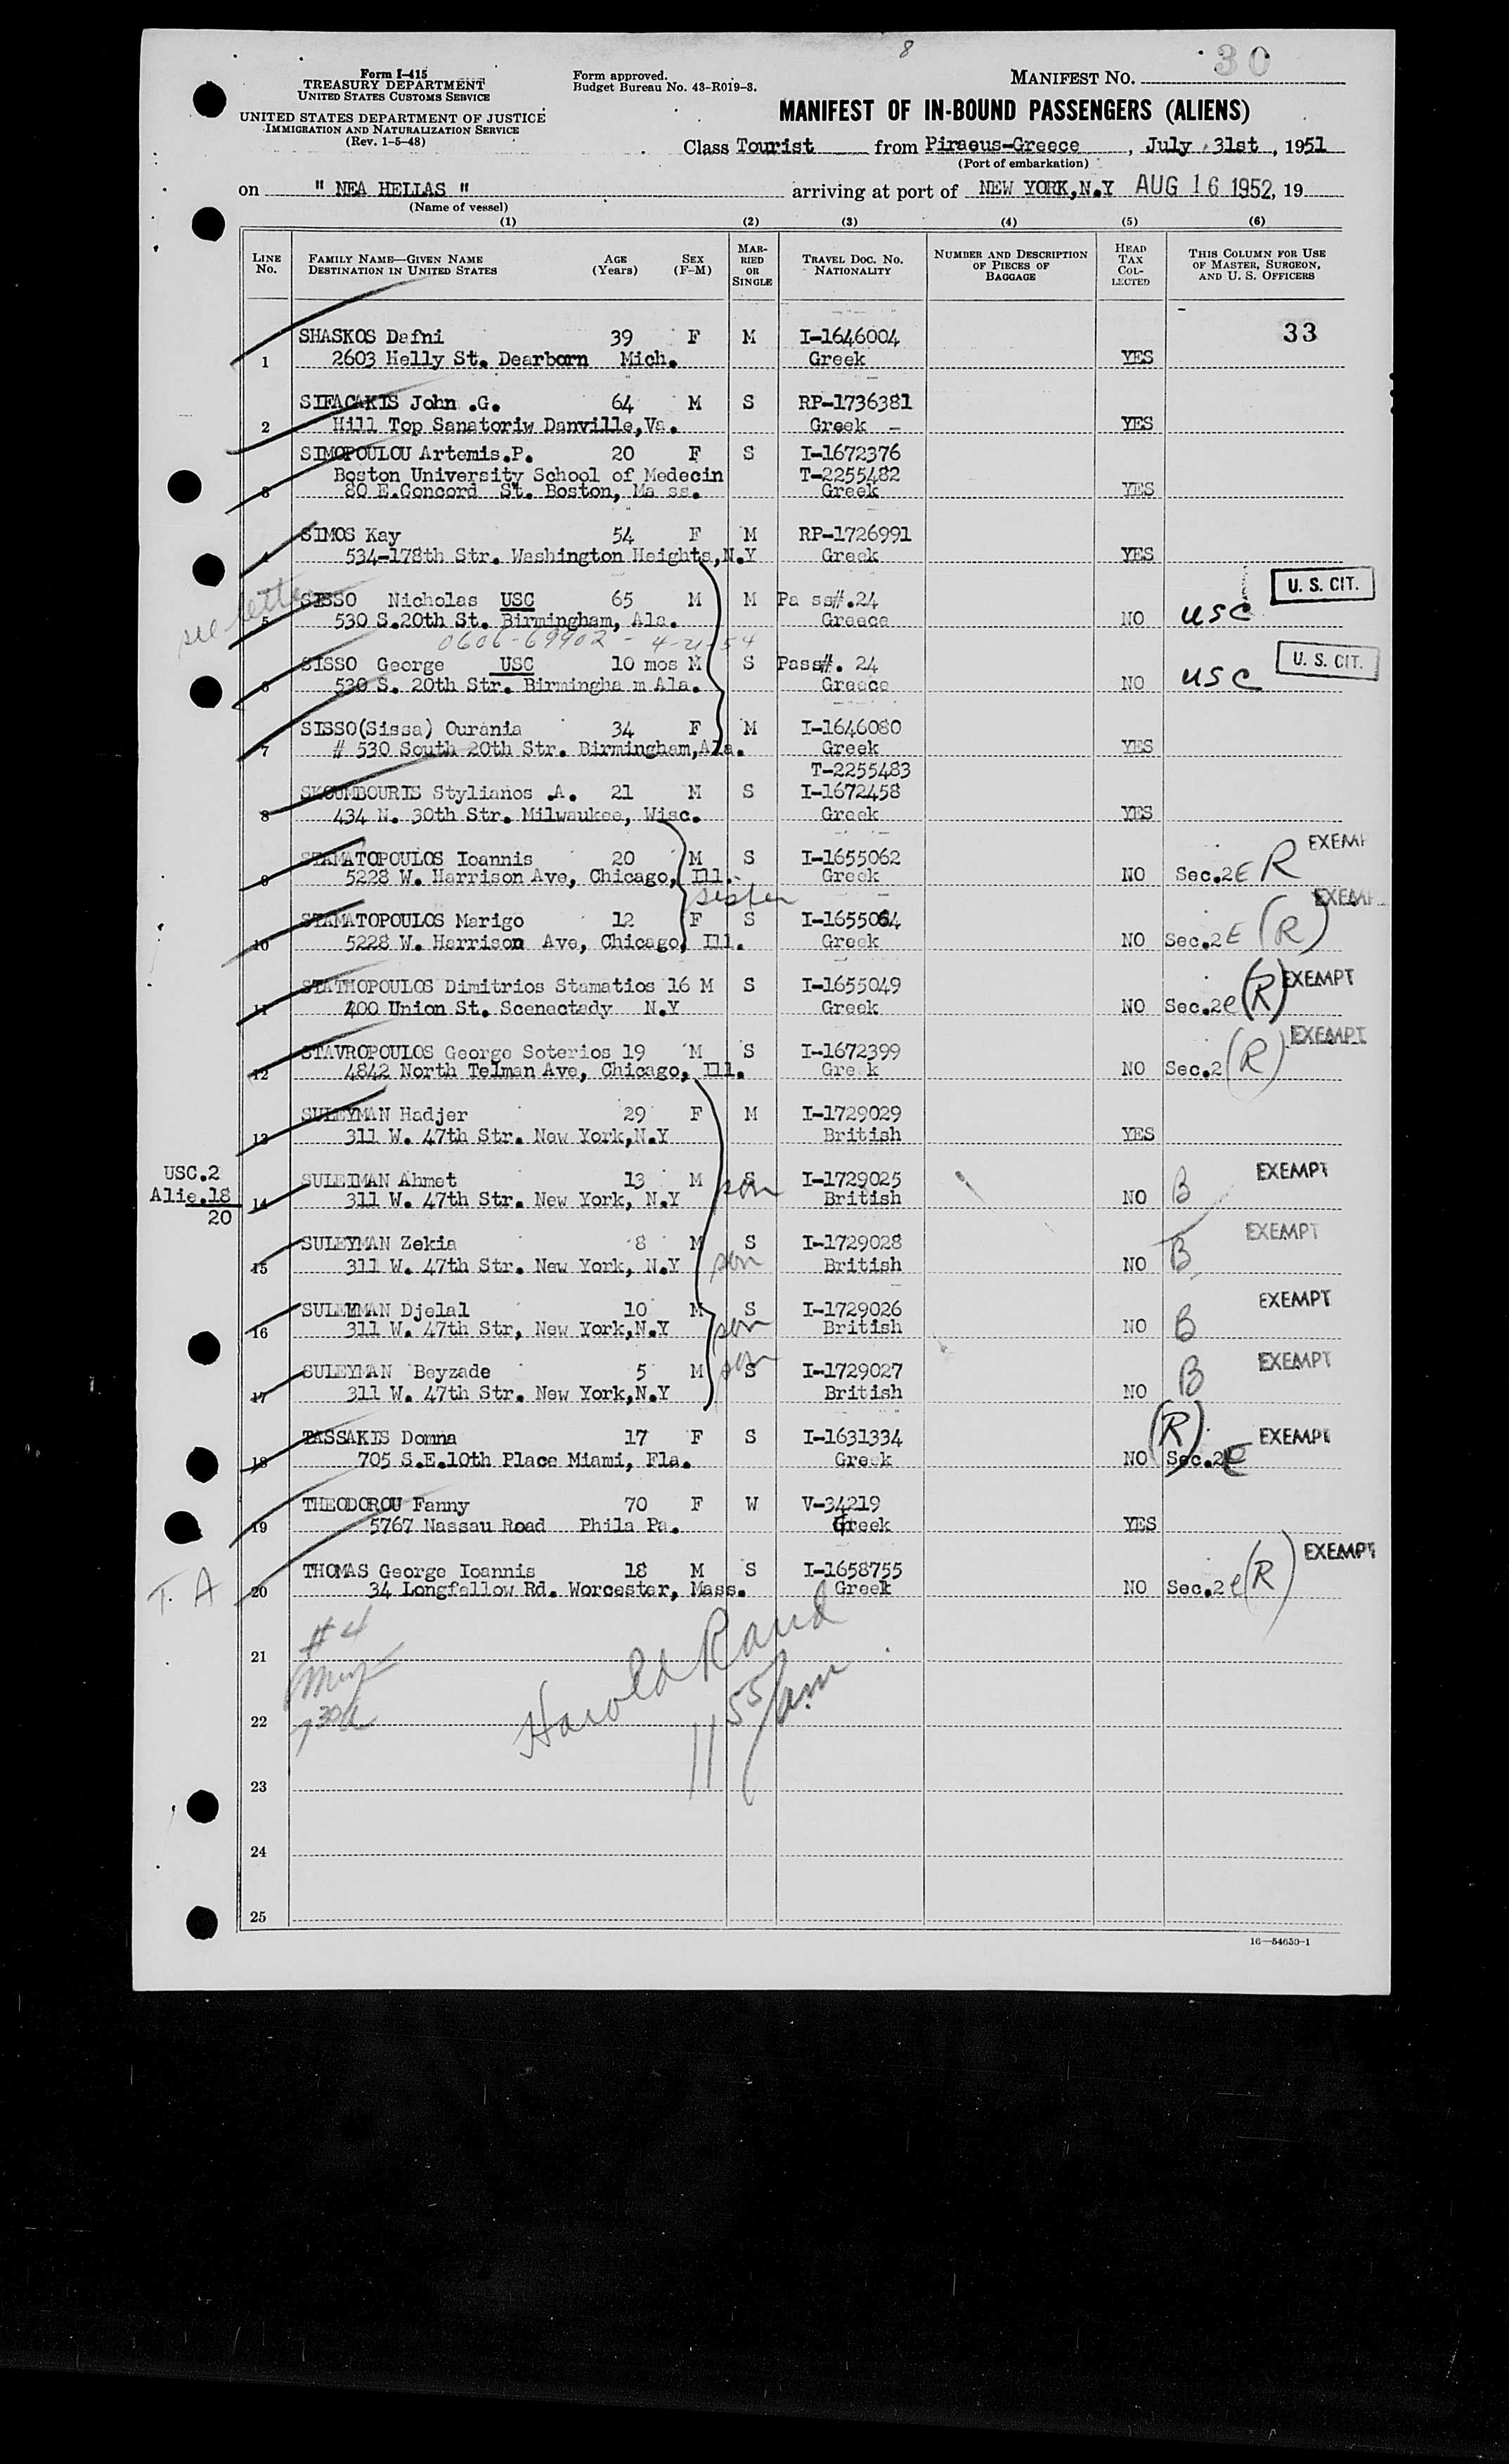 8
30
Form I-415
TREASURY DEPARTMENT
UNITED STATES CUSTOMS SERVICE
UNITED STATES DEPARTMENT OF JUSTICE
IMMIGRATION AND NATURALIZATION SERVICE
(Rev. 1-5-48)
Form approved.
Budget Bureau No. 43-R019-3.
MANIFEST No.
MANIFEST OF IN-BOUND PASSENGERS (ALIENS)
Class Tourist from Piraeus-Greece, July 31st, 1951
(Port of embarkation)
on " NEA HELLAS " arriving at port of NEW YORK,N.Y AUG 16 1952, 19
(Name of vessel)
(1) (2) (3) (4) (5) (6)
LINE No. FAMILY NAME—GIVEN NAME DESTINATION IN UNITED STATES AGE (Years) SEX (F-M) MARRIED OR SINGLE TRAVEL DOC. No. NATIONALITY NUMBER AND DESCRIPTION OF PIECES OF BAGGAGE HEAD TAX COLLECTED THIS COLUMN FOR USE OF MASTER, SURGEON, AND U. S. OFFICERS
33
SHASKOS Dafni 39 F M I-1646004
1 2603 Helly St. Dearborn Mich. Greek YES
SIFACAKIS John .G. 64 M S RP-1736381
2 Hill Top Sanatoriw Danville,Va. Greek - YES
SIMOPOULOU Artemis.P. 20 F S I-1672376
Boston University School of Medecin T-2255482
3 80 E.Concord St. Boston, Ma ss. Greek YES
SIMOS Kay 54 F M RP-1726991
4 534-178th Str. Washington Heights,N.Y Greek YES
see letter
SISSO Nicholas USC 65 M M Pa ss#.24 U. S. CIT.
5 530 S.20th St. Birmingham, Ala. Greece NO USC
0606-69902 - 4-21-54
SISSO George USC 10 mos M S Pass#. 24 U. S. CIT.
6 530 S. 20th Str. Birmingha m Ala. Greece NO USC
SISSO(Sissa) Ourania 34 F M I-1646080
7 # 530 South 20th Str. Birmingham,Ala. Greek YES
T-2255483
SKOUMBOURIS Stylianos .A. 21 M S I-1672458
8 434 N. 30th Str. Milwaukee, Wisc. Greek YES
STAMATOPOULOS Ioannis 20 M S I-1655062 EXEMP
9 5228 W. Harrison Ave, Chicago, Ill. Greek NO Sec.2E R
sister
STAMATOPOULOS Marigo 12 F S I-1655064 EXEMP
10 5228 W. Harrison Ave, Chicago, Ill. Greek NO Sec.2E (R)
STATHOPOULOS Dimitrios Stamatios 16 M S I-1655049 EXEMPT
11 400 Union St. Scenectady N.Y Greek NO Sec.2e (R)
STAVROPOULOS George Soterios 19 M S I-1672399 EXEMPT
12 4842 North Telman Ave, Chicago, Ill. Greek NO Sec.2 (R)
SULEYMAN Hadjer 29 F M I-1729029
13 311 W. 47th Str. New York,N.Y British YES
USC.2
Alie.18
20
SULEIMAN Ahmet 13 M S I-1729025 EXEMPT
14 311 W. 47th Str. New York, N.Y son British NO B
SULEYMAN Zekia 8 M S I-1729028 EXEMPT
15 311 W. 47th Str. New York, N.Y son British NO B
SULEYMAN Djelal 10 M S I-1729026 EXEMPT
16 311 W. 47th Str, New York,N.Y son British NO B
SULEYMAN Beyzade 5 M son S I-1729027 EXEMPT
17 311 W. 47th Str. New York,N.Y British NO B
TASSAKIS Domna 17 F S I-1631334 (R) EXEMPT
18 705 S.E.10th Place Miami, Fla. Greek NO Sec.2e
THEODOROU Fanny 70 F W V-34219
19 5767 Nassau Road Phila Pa. Greek YES
THOMAS George Ioannis 18 M S I-1658755 EXEMPT
T. A 20 34 Longfellow Rd. Worcester, Mass. Greek NO Sec.2e (R)
#4
21
Harold Rand
22
730A
11 55/am
23
24
25
16—54650-1